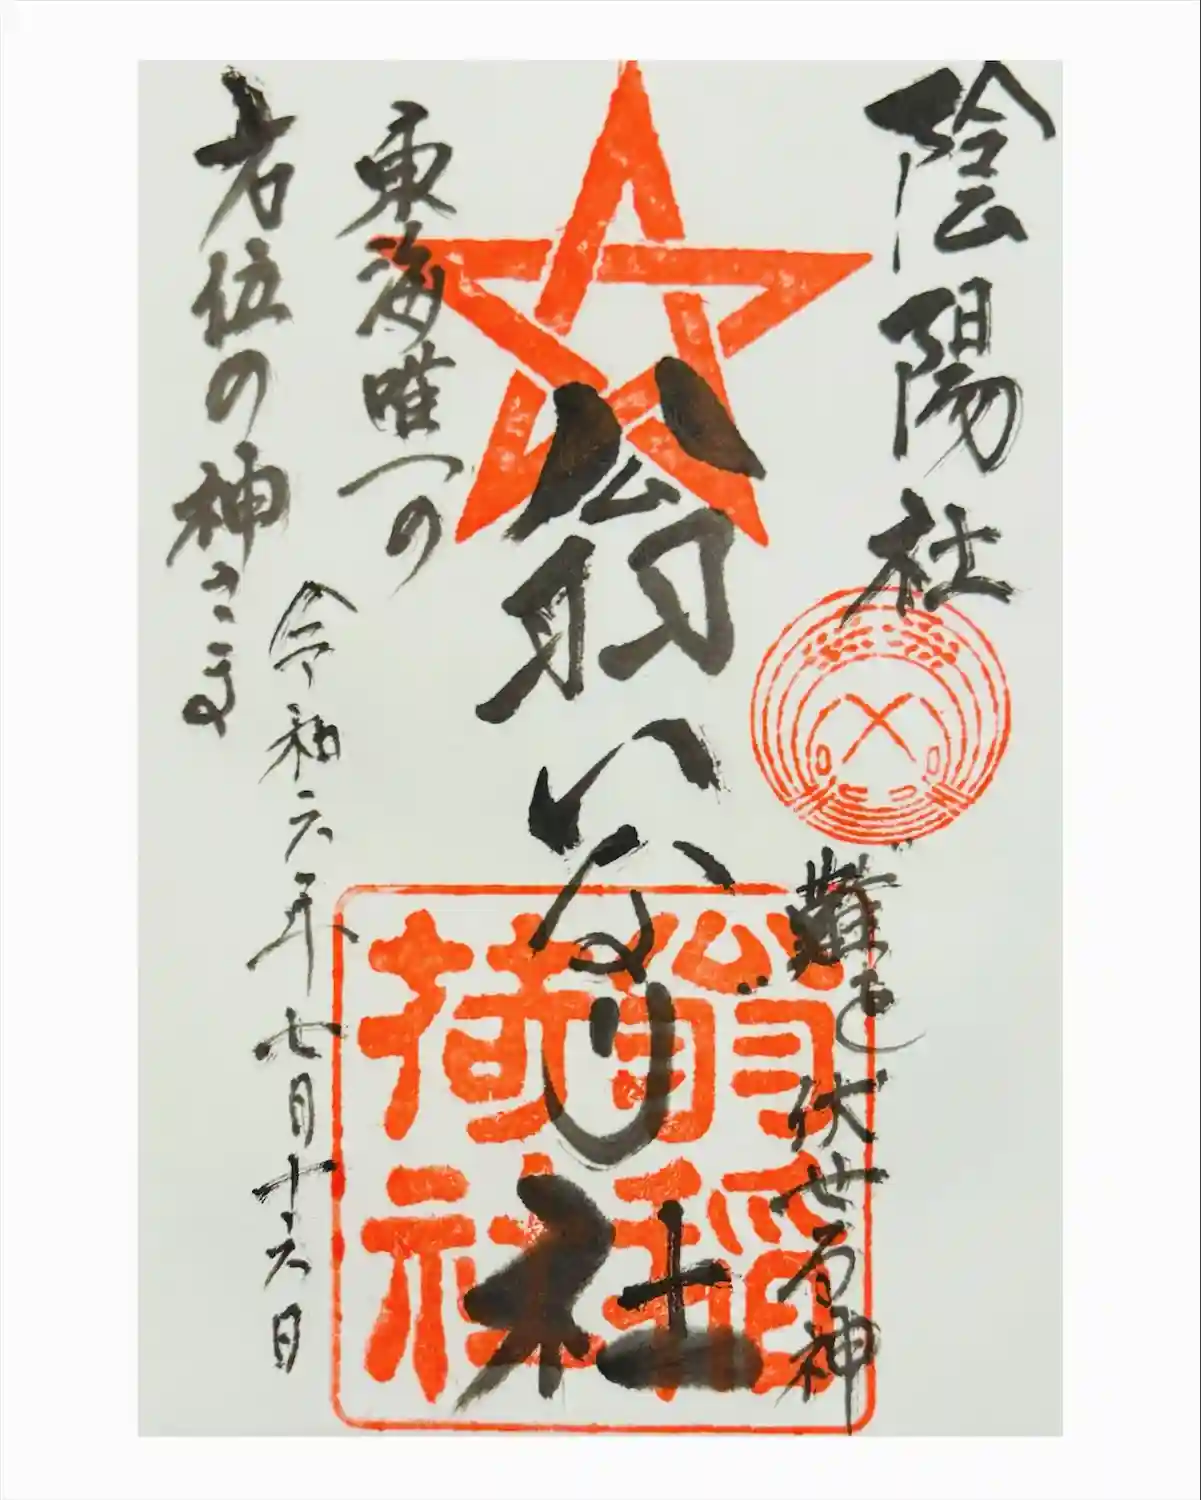 陰陽社
難を伏せる神
翁いなり社
翁稲荷社
東海唯一の
右位の神さま
令和六年七月十六日